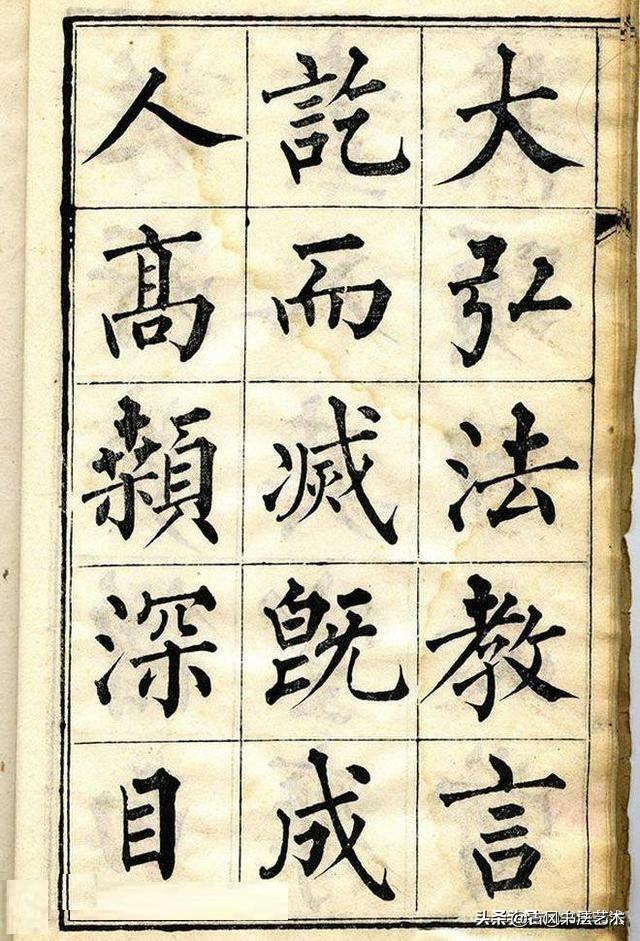 大弘法教言
訖而滅既成
人高顙深目
头条@古风书法艺术